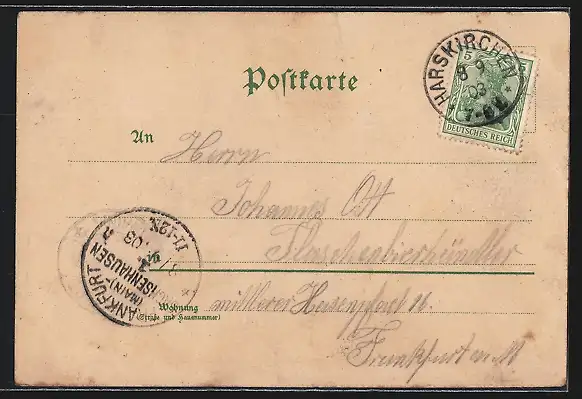 Postkarte
HARSKIRCHEN
8 9
03
7-8N
5 5
DEUTSCHES REICH
An Herrn
Johannes Ott
Flaschenbierhändler
in
FRANKFURT
(MAIN)
SACHSENHAUSEN
03
11-12N
mittlerer Hasenpfad 16
Wohnung
(Straße und Hausnummer)
Frankfurt a. M